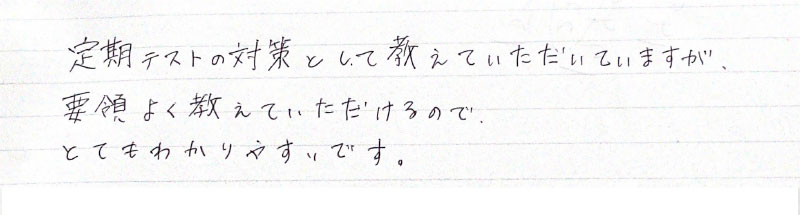 定期テストの対策として教えていただいていますが、
要領よく教えていただけるので、
とてもわかりやすいです。